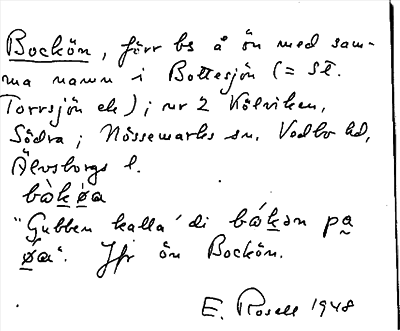 Bockön, förr bs å ön med sam-
ma namn i Bottesjön (= St.
Torrsjön ek); nr 2 Kölviken,
Södra; Nössemarks sn, Vedbo hd,
Älvsborgs l.
bàk̲ø̲a
"Gubben kalla' di bák̲ən pa̰
ø̲a". Jfr ön Bockön.
E. Rosell 1948